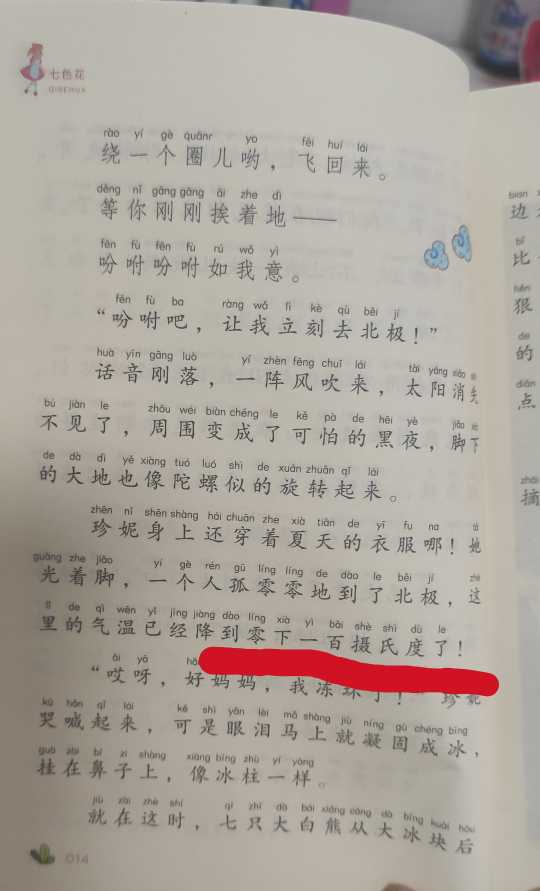 七色花
QISEHUA
rào yí gè quānr yo fēi huí lái
绕一个圈儿哟，飞回来。
děng nǐ gāng gāng āi zhe dì
等你刚刚挨着地——
fēn fù fēn fù rú wǒ yì
吩咐吩咐如我意。
fēn fù ba ràng wǒ lì kè qù běi jí
“吩咐吧，让我立刻去北极！”
huà yīn gāng luò yí zhèn fēng chuī lái tài yáng xiāo
话音刚落，一阵风吹来，太阳消失
bú jiàn le zhōu wéi biàn chéng le kě pà de hēi yè jiǎo
不见了，周围变成了可怕的黑夜，脚下
de dà dì yě xiàng tuó luó shì de xuán zhuǎn qǐ lái
的大地也像陀螺似的旋转起来。
zhēn nī shēn shàng hái chuān zhe xià tiān de yī fu na tā
珍妮身上还穿着夏天的衣服哪！她
guāng zhe jiǎo yí gè rén gū líng líng de dào le běi jí zhè
光着脚，一个人孤零零地到了北极，这
lǐ de qì wēn yǐ jīng jiàng dào líng xià yì bǎi shè shì dù le
里的气温已经降到零下一百摄氏度了！
āi yā
“哎呀，好妈妈，我冻坏了！”珍妮
kū hǎn qǐ lái kě shì yǎn lèi mǎ shàng jiù níng gù chéng bīng
哭喊起来，可是眼泪马上就凝固成冰，
guà zài bí zi shàng xiàng bīng zhù yí yàng
挂在鼻子上，像冰柱一样。
jiù zài zhè shí qī zhī dà bái xióng cóng dà bīng kuài hòu
就在这时，七只大白熊从大冰块后
014
biān
边
bǐ
比
hěn
狠
de
的
diǎn
点
zhāi
摘